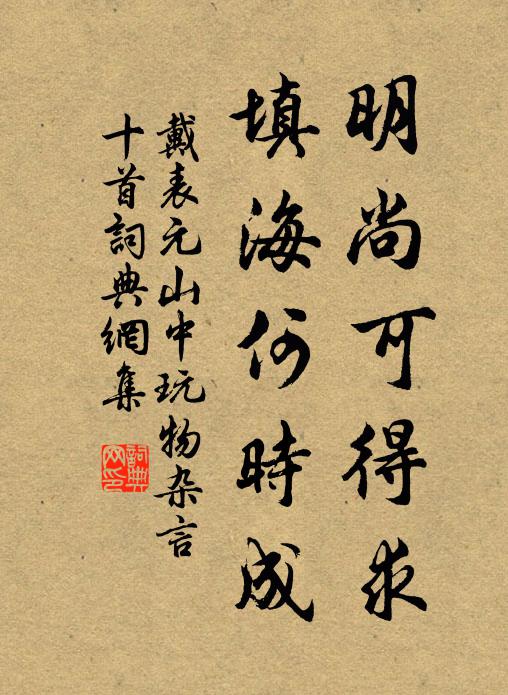 明尚可得求
填海何時成
戴表元山中玩物杂言
十首詞典網集
詞典網印